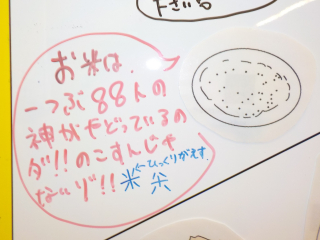 下さいね
お米は、
一つぶ88人の
神がやどっているの
ダ!!のこすんじゃ
ないゾ!!
←ひっくりがえす。
米 米